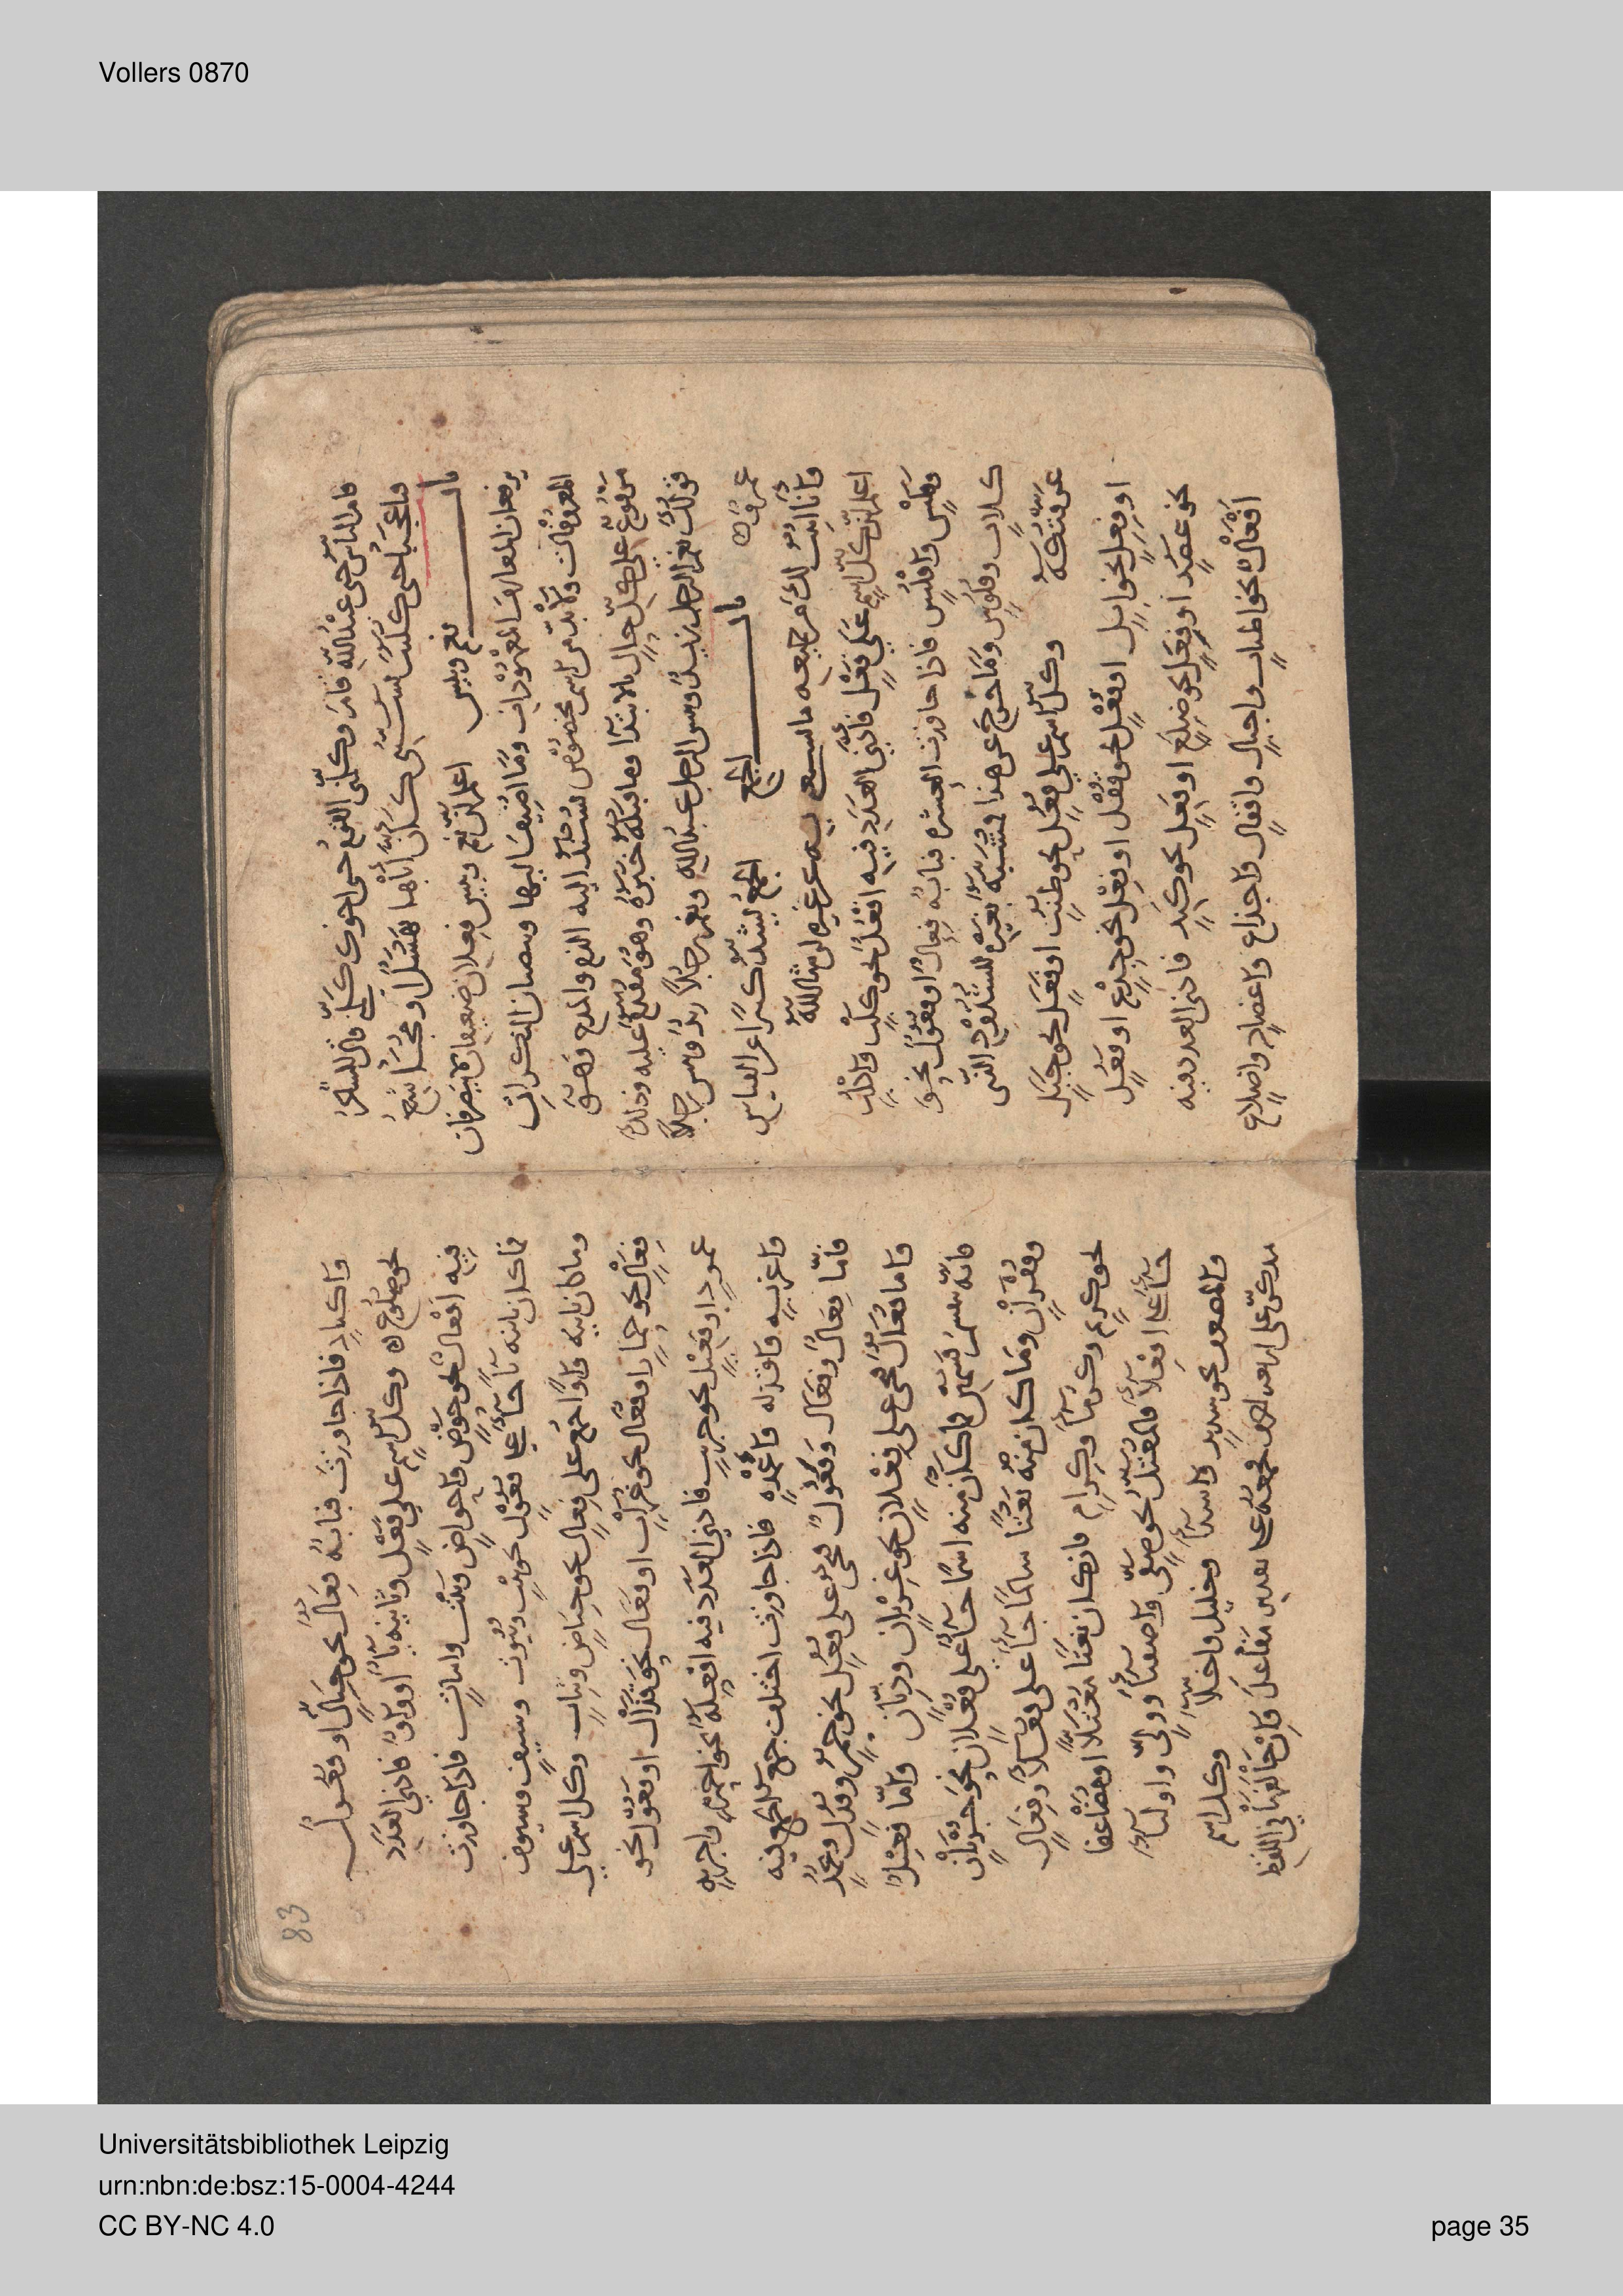 Vollers 0870
قام الناس حتى عبد الله قام وكلني القوم حتى اخوك كلني قال الشاعر
فيا عجبا حتى كليب تسبني كأن اباها نهشل او مجاشع
باب نعم وبئس اعلم ان نعم وبئس فعلان ضعيفان لا يتصرفان
يرفعان المعارف المعهودات وما اضيف اليها وينصبان النكرات
ولا بد من اسم مخصوص يسند اليه المدح والذم فهو
مرفوع على كل حال بالابتدا وما قبله خبره وهو مقدم عليه وذلك
قولك نعم الرجل زيد وبئس الرجل عبد الله ونعم رجلا زيد وبئس رجلا
عمرو
باب الجمع الجمع يشذ كثيرا عن القياس
وانا اثبت لك من جميعه ما عن غيره ان شا الله
اعلم ان كل اسم على فعل فأدنى العدد فيه افعل نحو كلب واكلب
وفلس وافلس فاذا جاوزت العشرة فبابه فعال او فعول نحو
كلاب وفلوس وما خرج عن هذا فمشبه بغيره للشذوذ الذي
عرفتكه وكل اسم على فعل نحو طنب او فعل نحو جبل
او فعل نحو ابل او فعل نحو قفل او فعل نحو جذع او فعل
نحو عضد او فعل نحو ضلع او فعل نحو كبد فادنى العدد فيه
افعال نحو اطناب واجبال واقفال واجذاع واعضاد واضلاع
83
واكباد فاذا جاوزت فبابه فعال نحو جبال او فعول
نحو ضلوع وكل اسم على فعل وثانيه يا او واو فادنى العدد
فيه افعال نحو حوض واحواض وبيت وابيات فاذا جاوزت
فما كان ثانيه يا جا على فعول نحو بيت وبيوت وسيف وسيوف
وما كان ثانيه واوا جمع على فعال نحو حياض وثياب وكل اسم على
فعال نحو حمار او فعال نحو غراب او فعال نحو قذال او فعول نحو
عمود او فعيل نحو جريب فادنى العدد فيه افعلة نحو احمرة واجربة
واغربة واقذلة واعمدة فاذا جاوزت اختلف جمع الجمع فيه
فاما فعال وفعال وفعول فتجي على فعل نحو حمر وقذل وعمد
واما فعال فتجي على فعلان نحو غربان وذبان واما فعيل
فانه ينقسم قسمين فما كان منه اسما جا على فعلان نحو جربان
وقفزان وما كان منه نعتا سالما جا على فعلا وفعال
نحو كريم وكرما وكرام فان كان نعتا معتلا او مضاعفا
جا على افعلا فالمعتل نحو صفي واصفيا وولي واوليا
والمضعف نحو شديد واشدا وخليل واخلا وكل اسم
مذكر على اربعة احرف فجمعه على مفاعل وان خالفها في اللفظ
Universitätsbibliothek Leipzig
urn:nbn:de:bsz:15-0004-4244
CC BY-NC 4.0
page 35